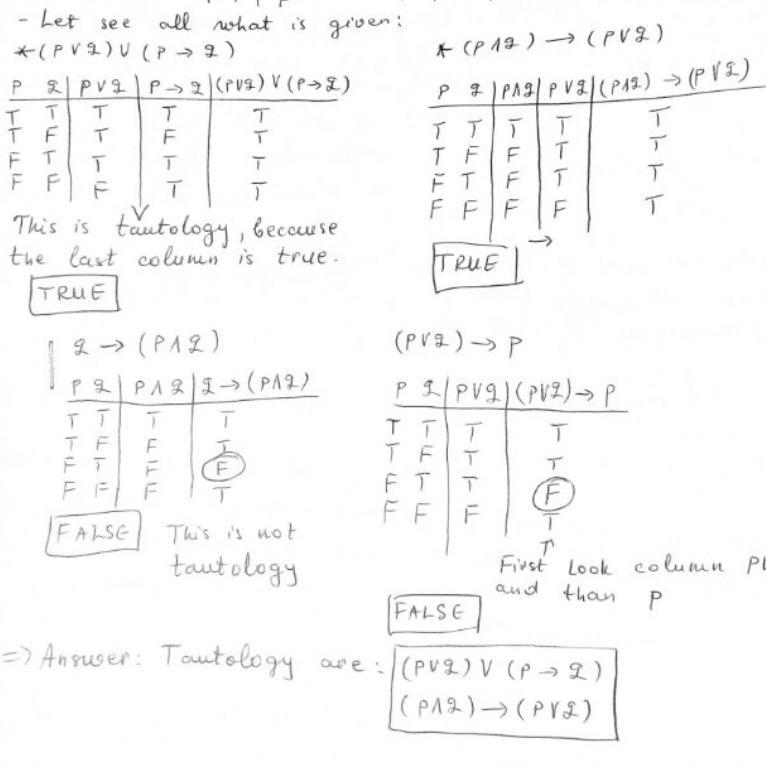 - Let see all what is given:
* (P ∨ q) ∨ (P → q)
P q | P ∨ q | P → q | (P ∨ q) ∨ (P → q)
T T | T | T | T
T F | T | F | T
F T | T | T | T
F F | F | T | T
This is tautology, because
the last column is true.
TRUE
* (P ∧ q) → (P ∨ q)
P q | P ∧ q | P ∨ q | (P ∧ q) → (P ∨ q)
T T | T | T | T
T F | F | T | T
F T | F | T | T
F F | F | F | T
→
TRUE
q → (P ∧ q)
P q | P ∧ q | q → (P ∧ q)
T T | T | T
T F | F | T
F T | F | F
F F | F | T
FALSE This is not
tautology
(P ∨ q) → P
P q | P ∨ q | (P ∨ q) → P
T T | T | T
T F | T | T
F T | T | F
F F | F | T
First Look column
and than P
FALSE
=> Answer: Tautology are: (P ∨ q) ∨ (P → q)
(P ∧ q) → (P ∨ q)